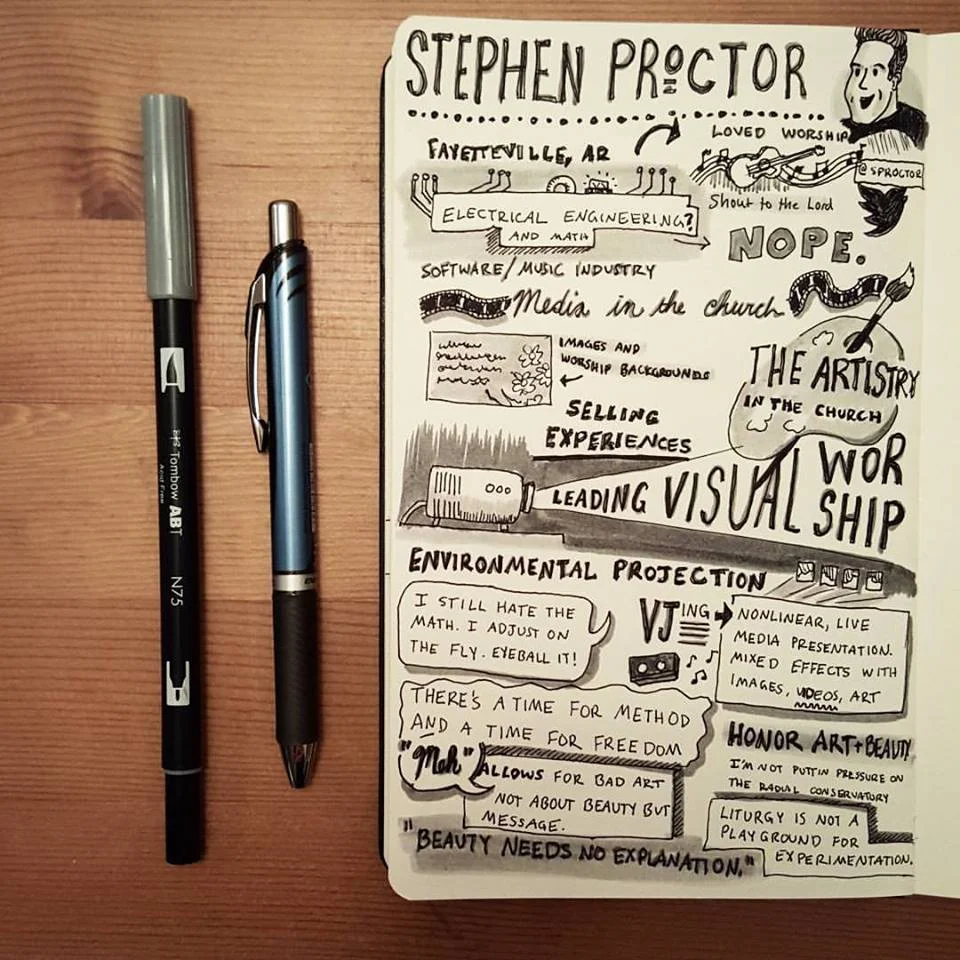 STEPHEN PROCTOR
LOVED WORSHIP
FAYETTEVILLE, AR
@SPROCTOR
Shout to the Lord
ELECTRICAL ENGINEERING?
AND MATH
NOPE.
SOFTWARE/MUSIC INDUSTRY
Media in the church
IMAGES AND
WORSHIP BACKGROUNDS
THE ARTISTRY
IN THE CHURCH
SELLING
EXPERIENCES
LEADING VISUAL WOR
SHIP
ENVIRONMENTAL PROJECTION
I STILL HATE THE
MATH. I ADJUST ON
THE FLY. EYEBALL IT!
VJING
NONLINEAR, LIVE
MEDIA PRESENTATION.
MIXED EFFECTS WITH
IMAGES, VIDEOS, ART
THERE'S A TIME FOR METHOD
AND A TIME FOR FREEDOM
"Meh" ALLOWS FOR BAD ART
NOT ABOUT BEAUTY BUT
MESSAGE.
HONOR ART+BEAUTY
I'M NOT PUTTIN PRESSURE ON
THE RADIAL CONSERVATORY
LITURGY IS NOT A
PLAYGROUND FOR
EXPERIMENTATION.
"BEAUTY NEEDS NO EXPLANATION."
Tombow ABT
Acid Free
N75